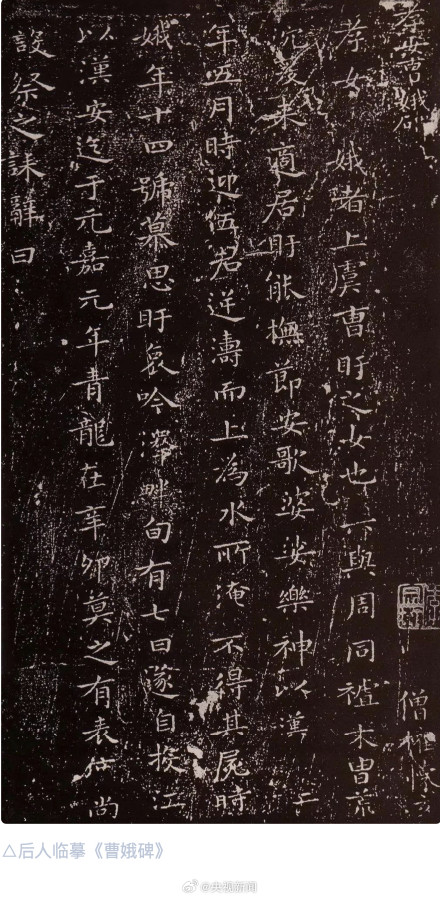 孝女曹娥碑
孝女曹娥者上虞曹盱之女也其先與周同祖末胄荒
沉爰来適居盱能撫節安歌婆娑樂神以漢安二
年五月時迎伍君逆濤而上為水所淹不得其屍時
娥年十四號慕思盱哀吟澤畔旬有七日遂自投江
以漢安迄于元嘉元年青龍在辛卯莫之有表度尚
設祭之誄辞曰
僧權
△后人临摹《曹娥碑》
@央视新闻